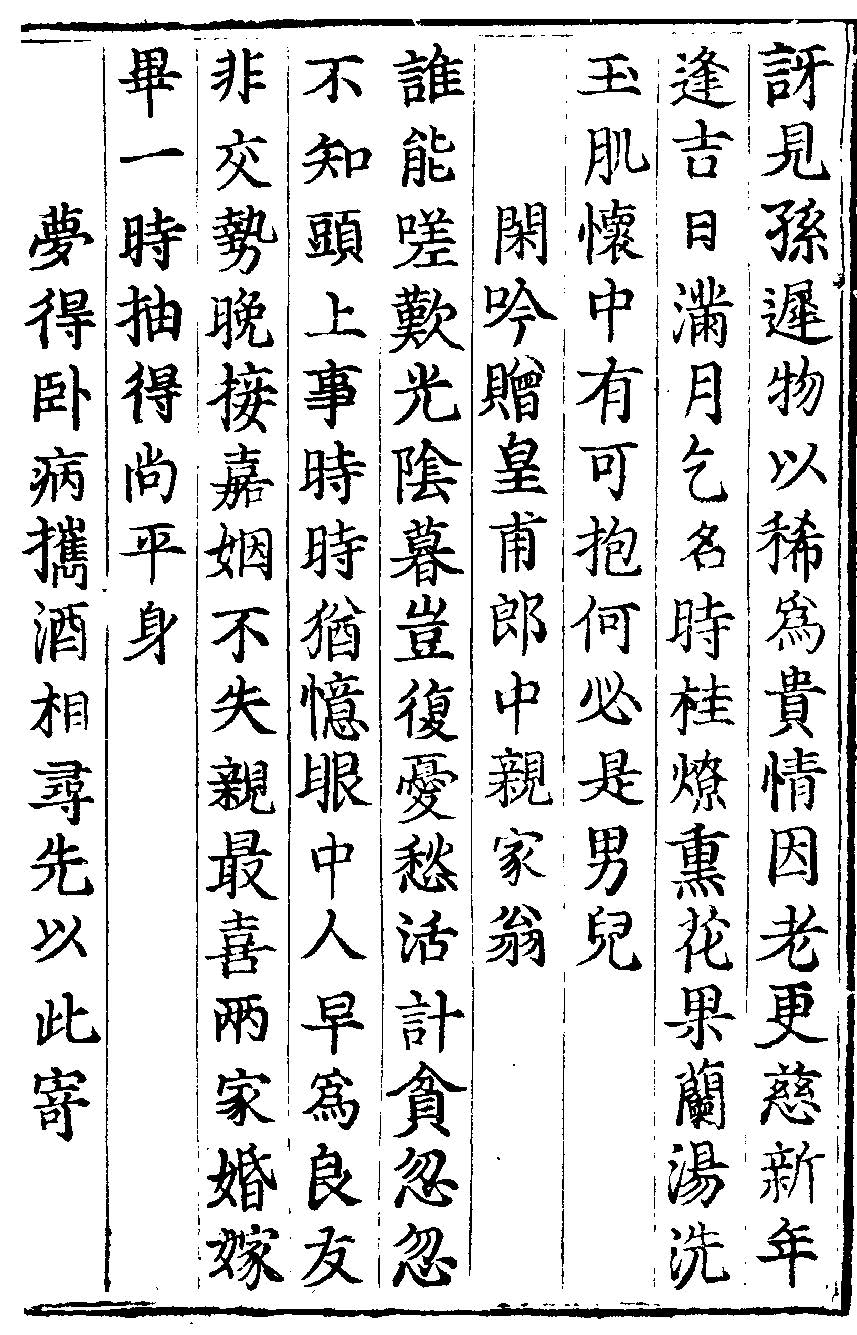 訝見孫遲物以稀爲貴情因老更慈新年
逢吉日滿月乞名時桂燎熏花果蘭湯洗
玉肌懷中有可抱何必是男兒
閑吟贈皇甫郎中親家翁
誰能嗟歎光陰暮豈復憂愁活計貧忽忽
不知頭上事時時猶憶眼中人早爲良友
非交勢晚接嘉姻不失親最喜兩家婚嫁
畢一時抽得尚平身
夢得卧病攜酒相尋先以此寄